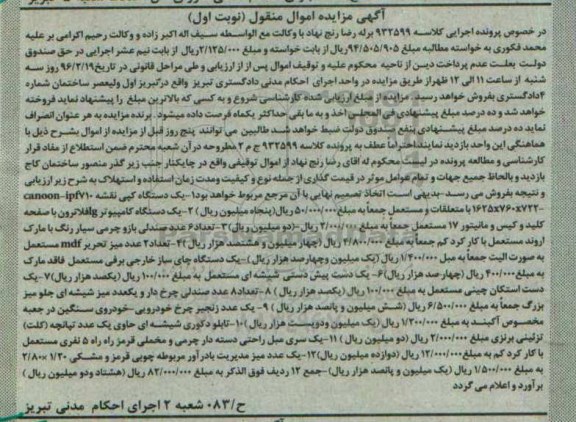 آگهی مزایده اموال منقول (نوبت اول)
در خصوص پرونده اجرایی کلاسه ۹۳۲۵۹۹ برله رضا رنج نهاد با وکالت مع الواسطه سیف اله اکبر زاده و وکالت رحیم اکرامی بر علیه
محمد فکوری به خواسته مطالبه مبلغ ۹۴/۵۰۵/۹۰۵ریال از بابت خواسته و مبلغ ۲/۱۲۵/۰۰۰ریال از بابت نیم عشر اجرایی در حق صندوق
دولت بعلت عدم پرداخت دین از ناحیه محکوم علیه و توقیف اموال پس از ارزیابی و طی مراحل قانونی در تاریخ۹۶/۲/۱۹ روز سه
شنبه از ساعت ۱۱ الی ۱۲ ظهراز طریق مزایده در واحد اجرای احکام مدنی دادگستری تبریز واقع درتبریز اول ولیعصر ساختمان شماره
۴دادگستری بفروش خواهد رسید. مزایده از مبلغ ارزیابی شده کارشناسی شروع و به کسی که بالاترین مبلغ را پیشنهاد نماید فروخته
خواهد شد و ده درصد مبلغ پیشنهادی فی المجلس اخذ و به ما بقی حداکثر یکماه فرصت داده میشود. برنده مزایده به هر عنوان انصراف
نماید ده درصد مبلغ پیشنهادی بنفع صندوق دولت ضبط خواهد شد طالبین می توانند پنج روز قبل از مزایده از اموال بشرح ذیل با
هماهنگی این واحد بازدید نمایند.احتراماً عطف به پرونده کلاسه ۹۳۲۵۹۹ ج م ۲ مطروحه در آن شعبه محترم ضمن استطلاع از مفاد قرار
کارشناسی و مطالعه پرونده در لیست محکوم له اقای رضا رنج نهاد از اموال توقیفی واقع در چایکنار جنب زیر گذر منصور ساختمان کاج
بازدید و بالحاظ جمیع جهات و تمام عوامل موثر در قیمت گذاری از جمله نوع و کیفیت ومدت زمان استفاده و استهلاک به شرح زیر ارزیابی
و نتیجه بفروش می رسد-بدیهی است اتخاذ تصمیم نهایی با آن مرجع مربوط خواهد بود۱-یک دستگاه کپی نقشه canoon-ipf۷۱۰
-۱۶۲۵x۷۶۰x۷۲۲ با متعلقات و مستعمل جمعاً به مبلغ ۵۰/۰۰۰/۰۰۰ ریال(پنجاه میلیون ریال) ۲-یک دستگاه کامپیوتر lgفلاترون با صفحه
کلید و کیس و مانیتور ۱۷ مستعمل جمعاً به مبلغ ۲/۰۰۰/۰۰۰ ریال-(دو میلیون ریال)۳-تعداد۶ عدد صندلی بازو چرمی سیار رنگ با مارک
اروند مستعمل با کار کرد کم جمعاً به مبلغ ۴/۸۰۰/۰۰۰ ریال (چهار میلیون و هشتصد هزار ریال)۴-تعداد۲ عدد میز تحریر mdf مستعمل
به صورت الیت جمعاً به مبل ۱/۴۰۰/۰۰۰ ریال(یک میلیون وچهارصد هزار ریال)-یک دستگاه چای ساز خارجی برقی مستعمل فاقد مارک
به مبلغ ۴۰۰/۰۰۰ ریال (چهار صد هزار ریال)۶-یک دست پیش دستی شیشه ای مستعمل به مبلغ ۱۰۰/۰۰۰ ریال (یکصد هزار ریال)۷-یک
دست استکان چینی مستعمل به مبلغ ۱۰۰/۰۰۰ ریال (یکصد هزار ریال) ۸-تعداد۸ عدد صندلی چرخ دار و یکعدد میز شیشه ای جلو میز
بزرگ جمعاً به مبلغ ۶/۵۰۰/۰۰۰ ریال (شش میلیون و پانصد هزار ریال) ۹-یک عدد زنجیر چرخ خودرویی-خودروی سنگین در جعبه
مخصوص آکبند به مبلغ ۱/۲۰۰/۰۰۰ ریال(یک میلیون ودویست هزار ریال)۱۰-تابلو دکوری شیشه ای حاوی یک عدد تپانچه (کلت)
تزئینی برنزی مبلغ ۲/۰۰۰/۰۰۰ ریال (دو میلیون ریال) ۱۱-یک سری مبل راحتی دسته دار چرمی و مخملی قرمز راه راه ۵ نفری مستعمل
با کار کرد کم به مبلغ ۱۲/۰۰۰/۰۰۰ ریال (دوازده میلیون ریال)۱۲-یک عدد میز مدیریت بادرآور مربوطه چوبی قرمز و مشکی ۱/۲۰ ×۲/۸۰
به مبلغ ۱/۵۰۰/۰۰۰ ریال (یک میلیون و پانصد هزار ریال)-جمع ۱۲ ردیف فوق الذکر به مبلغ ۸۲/۰۰۰/۰۰۰ ریال (هشتاد ودو میلیون ریال)
برآورد و اعلام می گردد
ح/۰۸۳ شعبه ۲ اجرای احکام مدنی تبریز